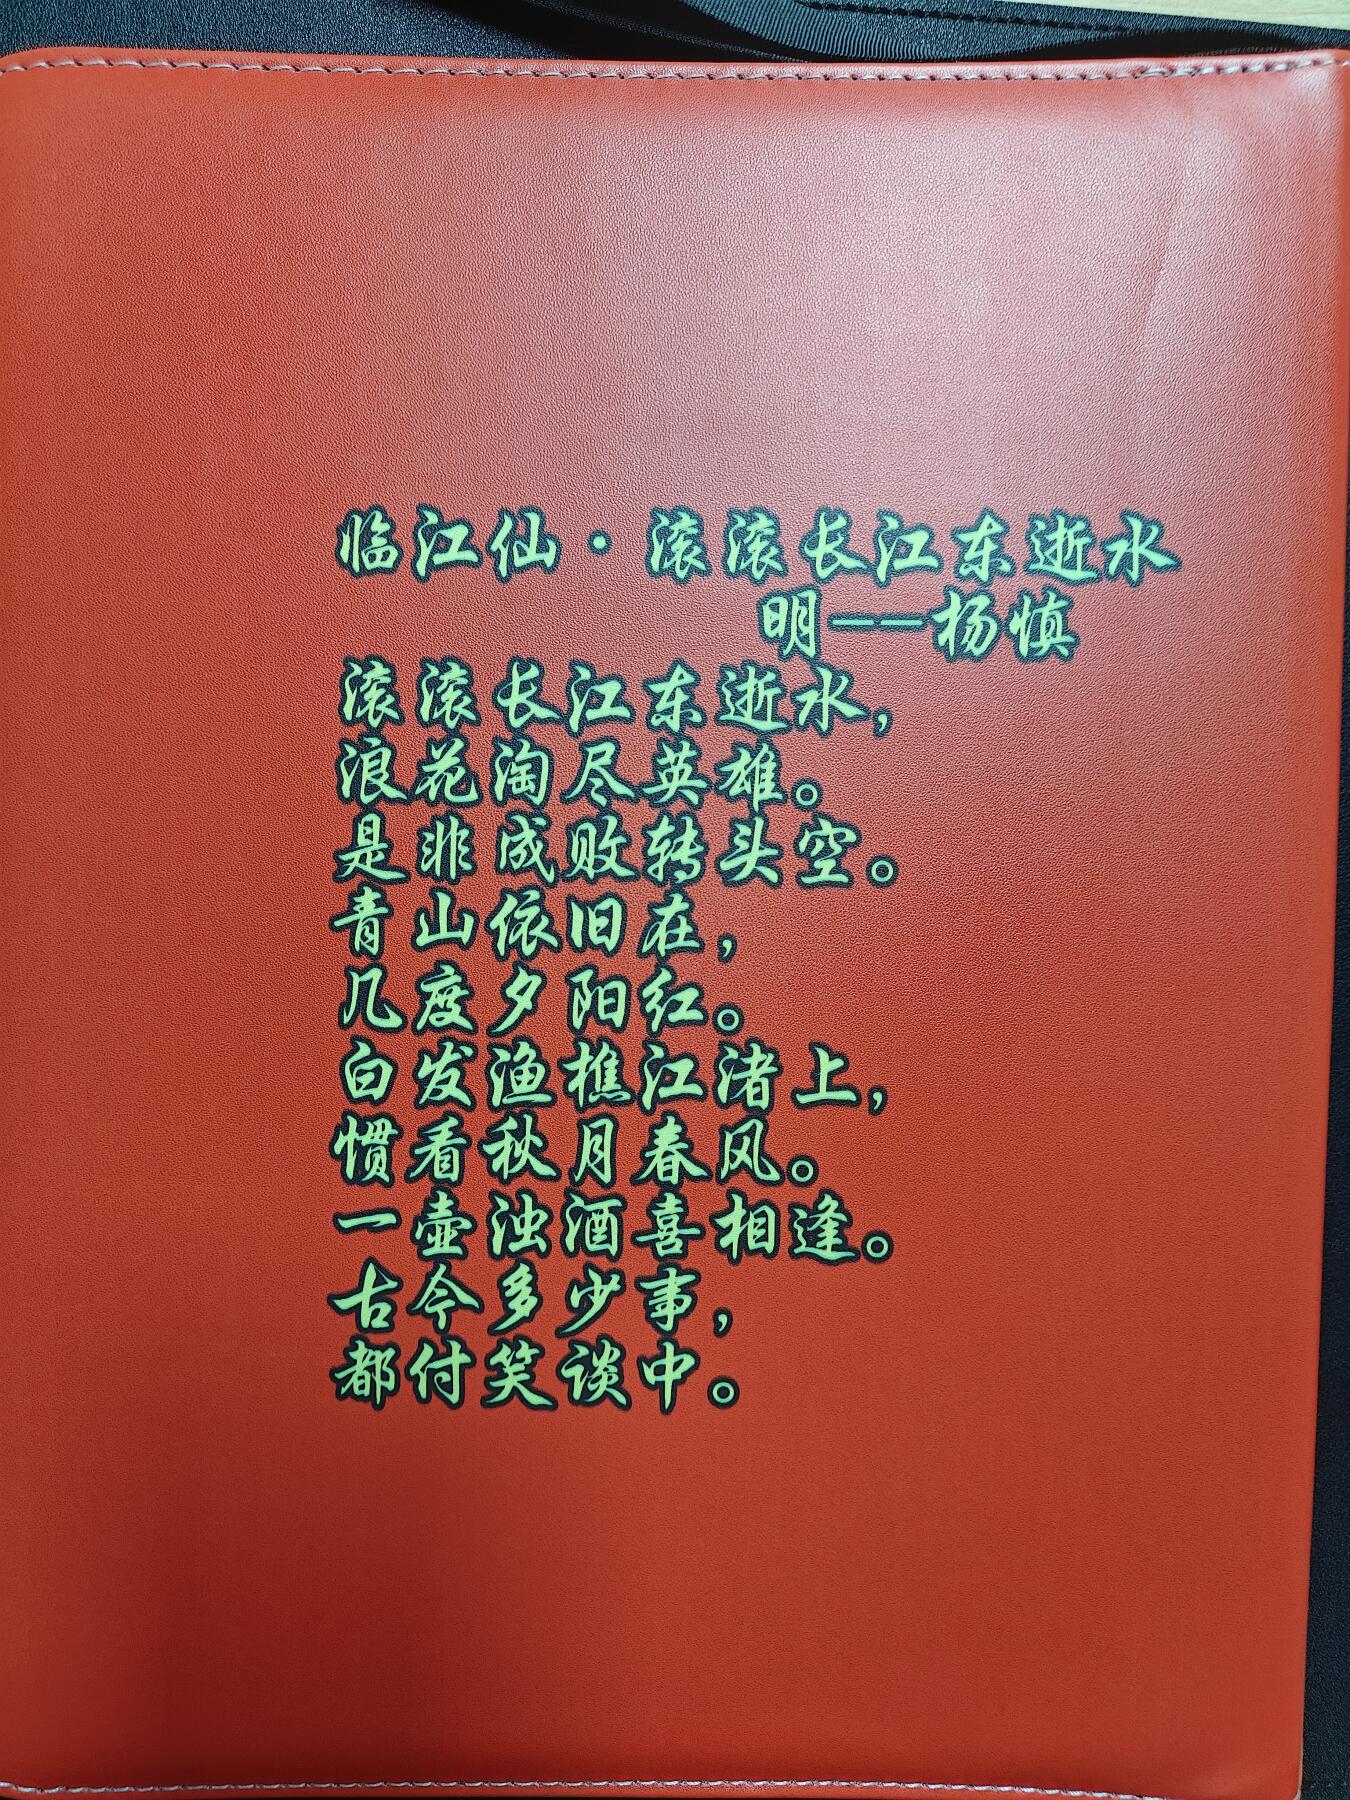 临江仙·滚滚长江东逝水
明——杨慎
滚滚长江东逝水，
浪花淘尽英雄。
是非成败转头空。
青山依旧在，
几度夕阳红。
白发渔樵江渚上，
惯看秋月春风。
一壶浊酒喜相逢。
古今多少事，
都付笑谈中。